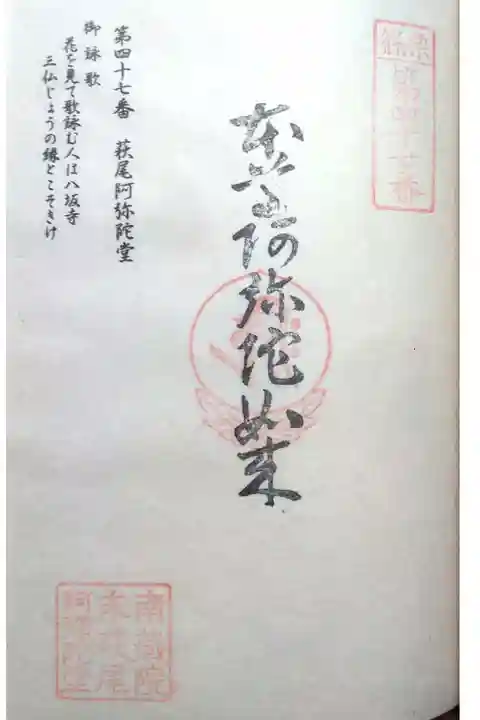 篠栗
第四十七番
奉
阿弥陀如来
第四十七番 萩尾阿弥陀堂
御詠歌
花を見て歌詠む人は八坂寺
三仏じょうの縁とこそきけ
南蔵院
末萩尾
阿弥陀堂